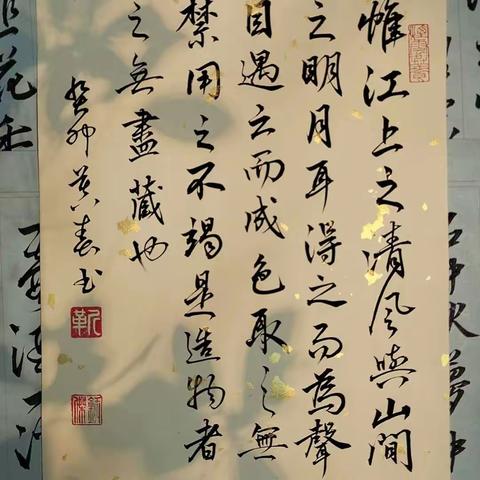 惟江上之清風與山間
之明月耳得之而為聲
目遇之而成色取之無
禁用之不竭是造物者
之無盡藏也
癸卯莫春书
靳
石中火夢中